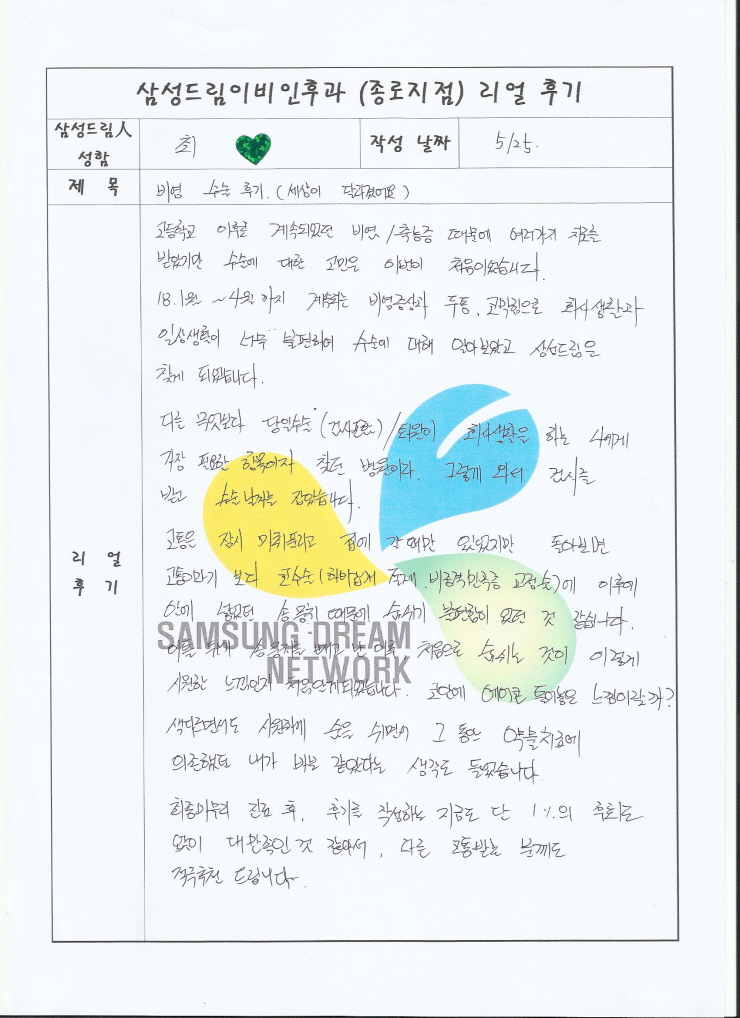 삼성드림이비인후과 (종로지점) 리얼 후기
삼성드림人 성함
최
작성 날짜
5/25.
제 목
비염 수술 후기. (세상이 달라졌어요)
리 얼
후 기
고등학교 이후로 계속되었던 비염/축농증 때문에 여러가지 치료를
받았지만 수술에 대한 고민은 이번이 처음이었습니다.
18.1월 ~4월 까지 계속되는 비염증상과 두통, 코막힘으로 회사생활과
일상생활이 너무 불편하여 수술에 대해 알아보았고 삼성드림을
찾게 되었습니다.
다른 무엇보다 당일수술 (검사포함)/퇴원이 회사생활을 하는 나에게
가장 필요한 항목이자 찾던 병원이라. 그렇게 와서 검사를
받고 수술날짜를 잡았습니다.
고통은 잠시 마취풀리고 집에 갈때만 있었지만 돌아보면
고통이라기 보다 코수술( 비중격만곡증 교정술)에 이후에
안에 넣었던 솜뭉치 때문에 숨쉬기 불편함이 었던 것 같습니다.
이틀 뒤에 솜뭉치를 빼고 난 이후 처음으로 숨쉬는 것이 이렇게
시원한 느낌인지 처음알게되었습니다. 코안에 에어콘 틀어놓은 느낌이랄까?
색다르면서도 시원하게 숨을 쉬면서 그 동안 약물치료에
의존했던 내가 바보 같았다는 생각도 들었습니다.
최종마무리 진료 후, 후기를 작성하는 지금도 단 1%의 후회도
없이 대만족인 것 같아서, 다른 고통받는 분께도
적극추천 드립니다.
SAMSUNG DREAM
NETWORK